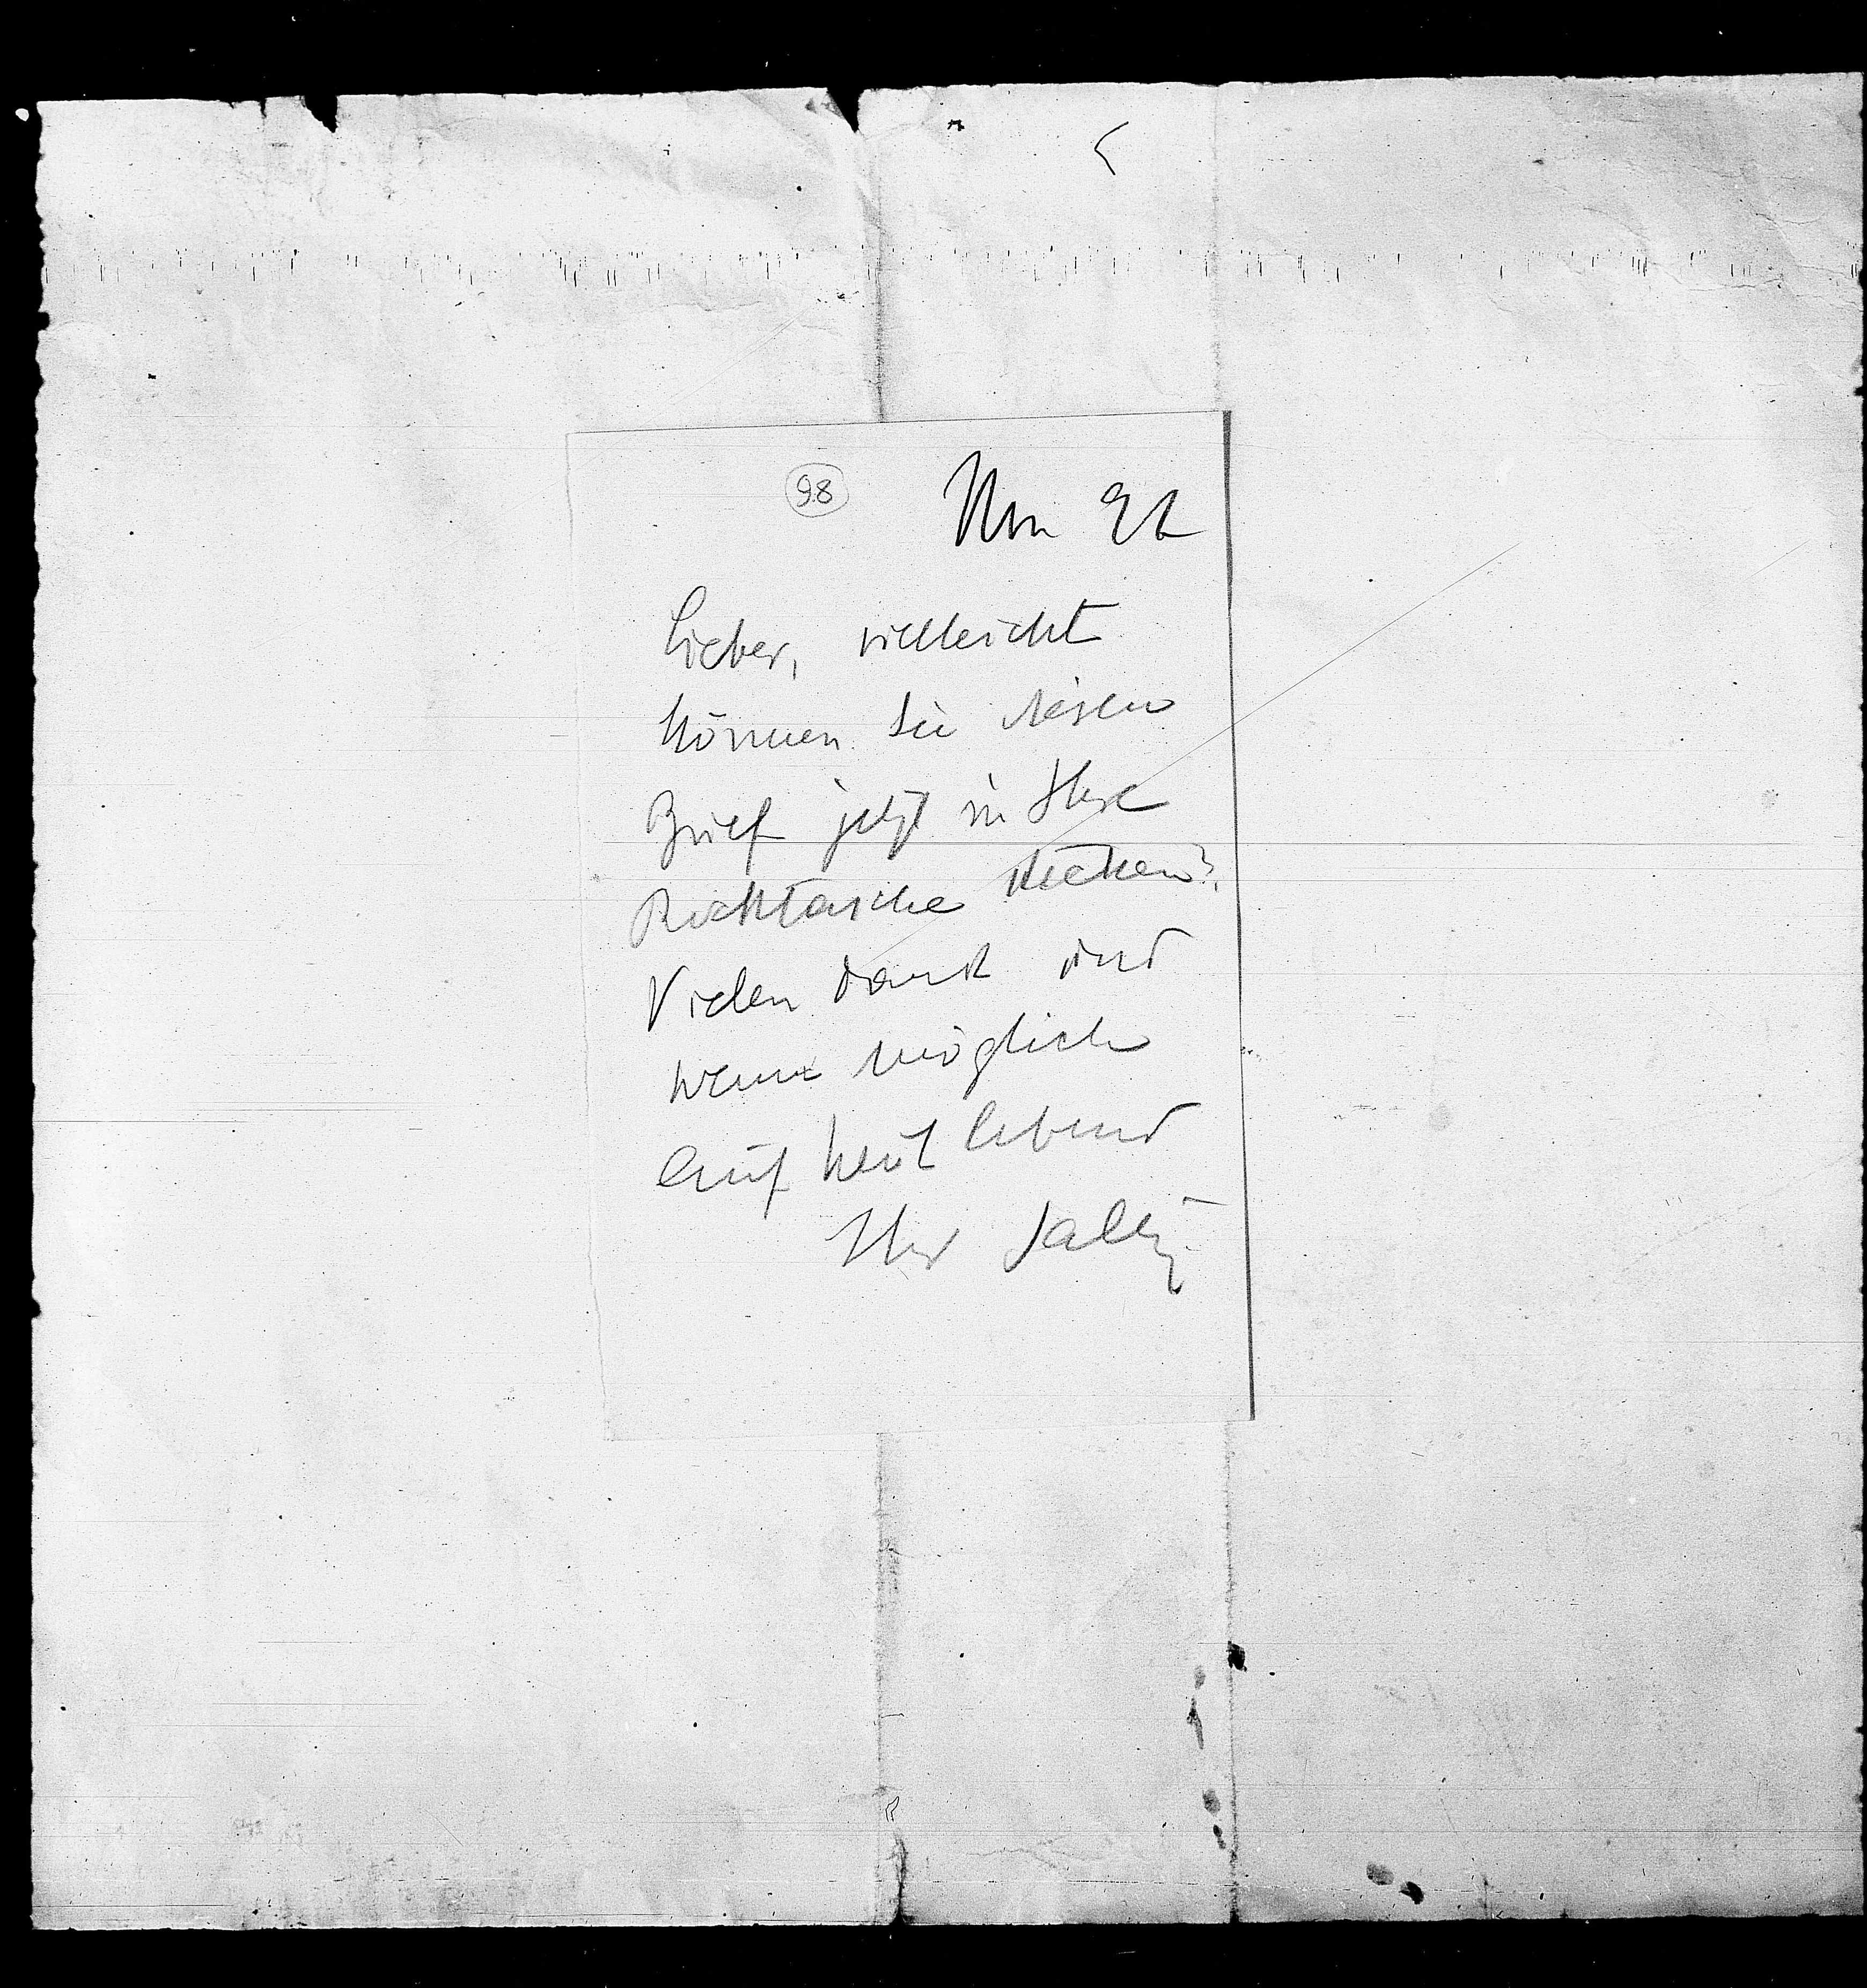 98
Lieber, vielleicht
können Sie diesen
Brief jetzt in Ihre
Rocktasche stecken?
Vielen dank und
wenn möglich
auf heut abend
Ihr